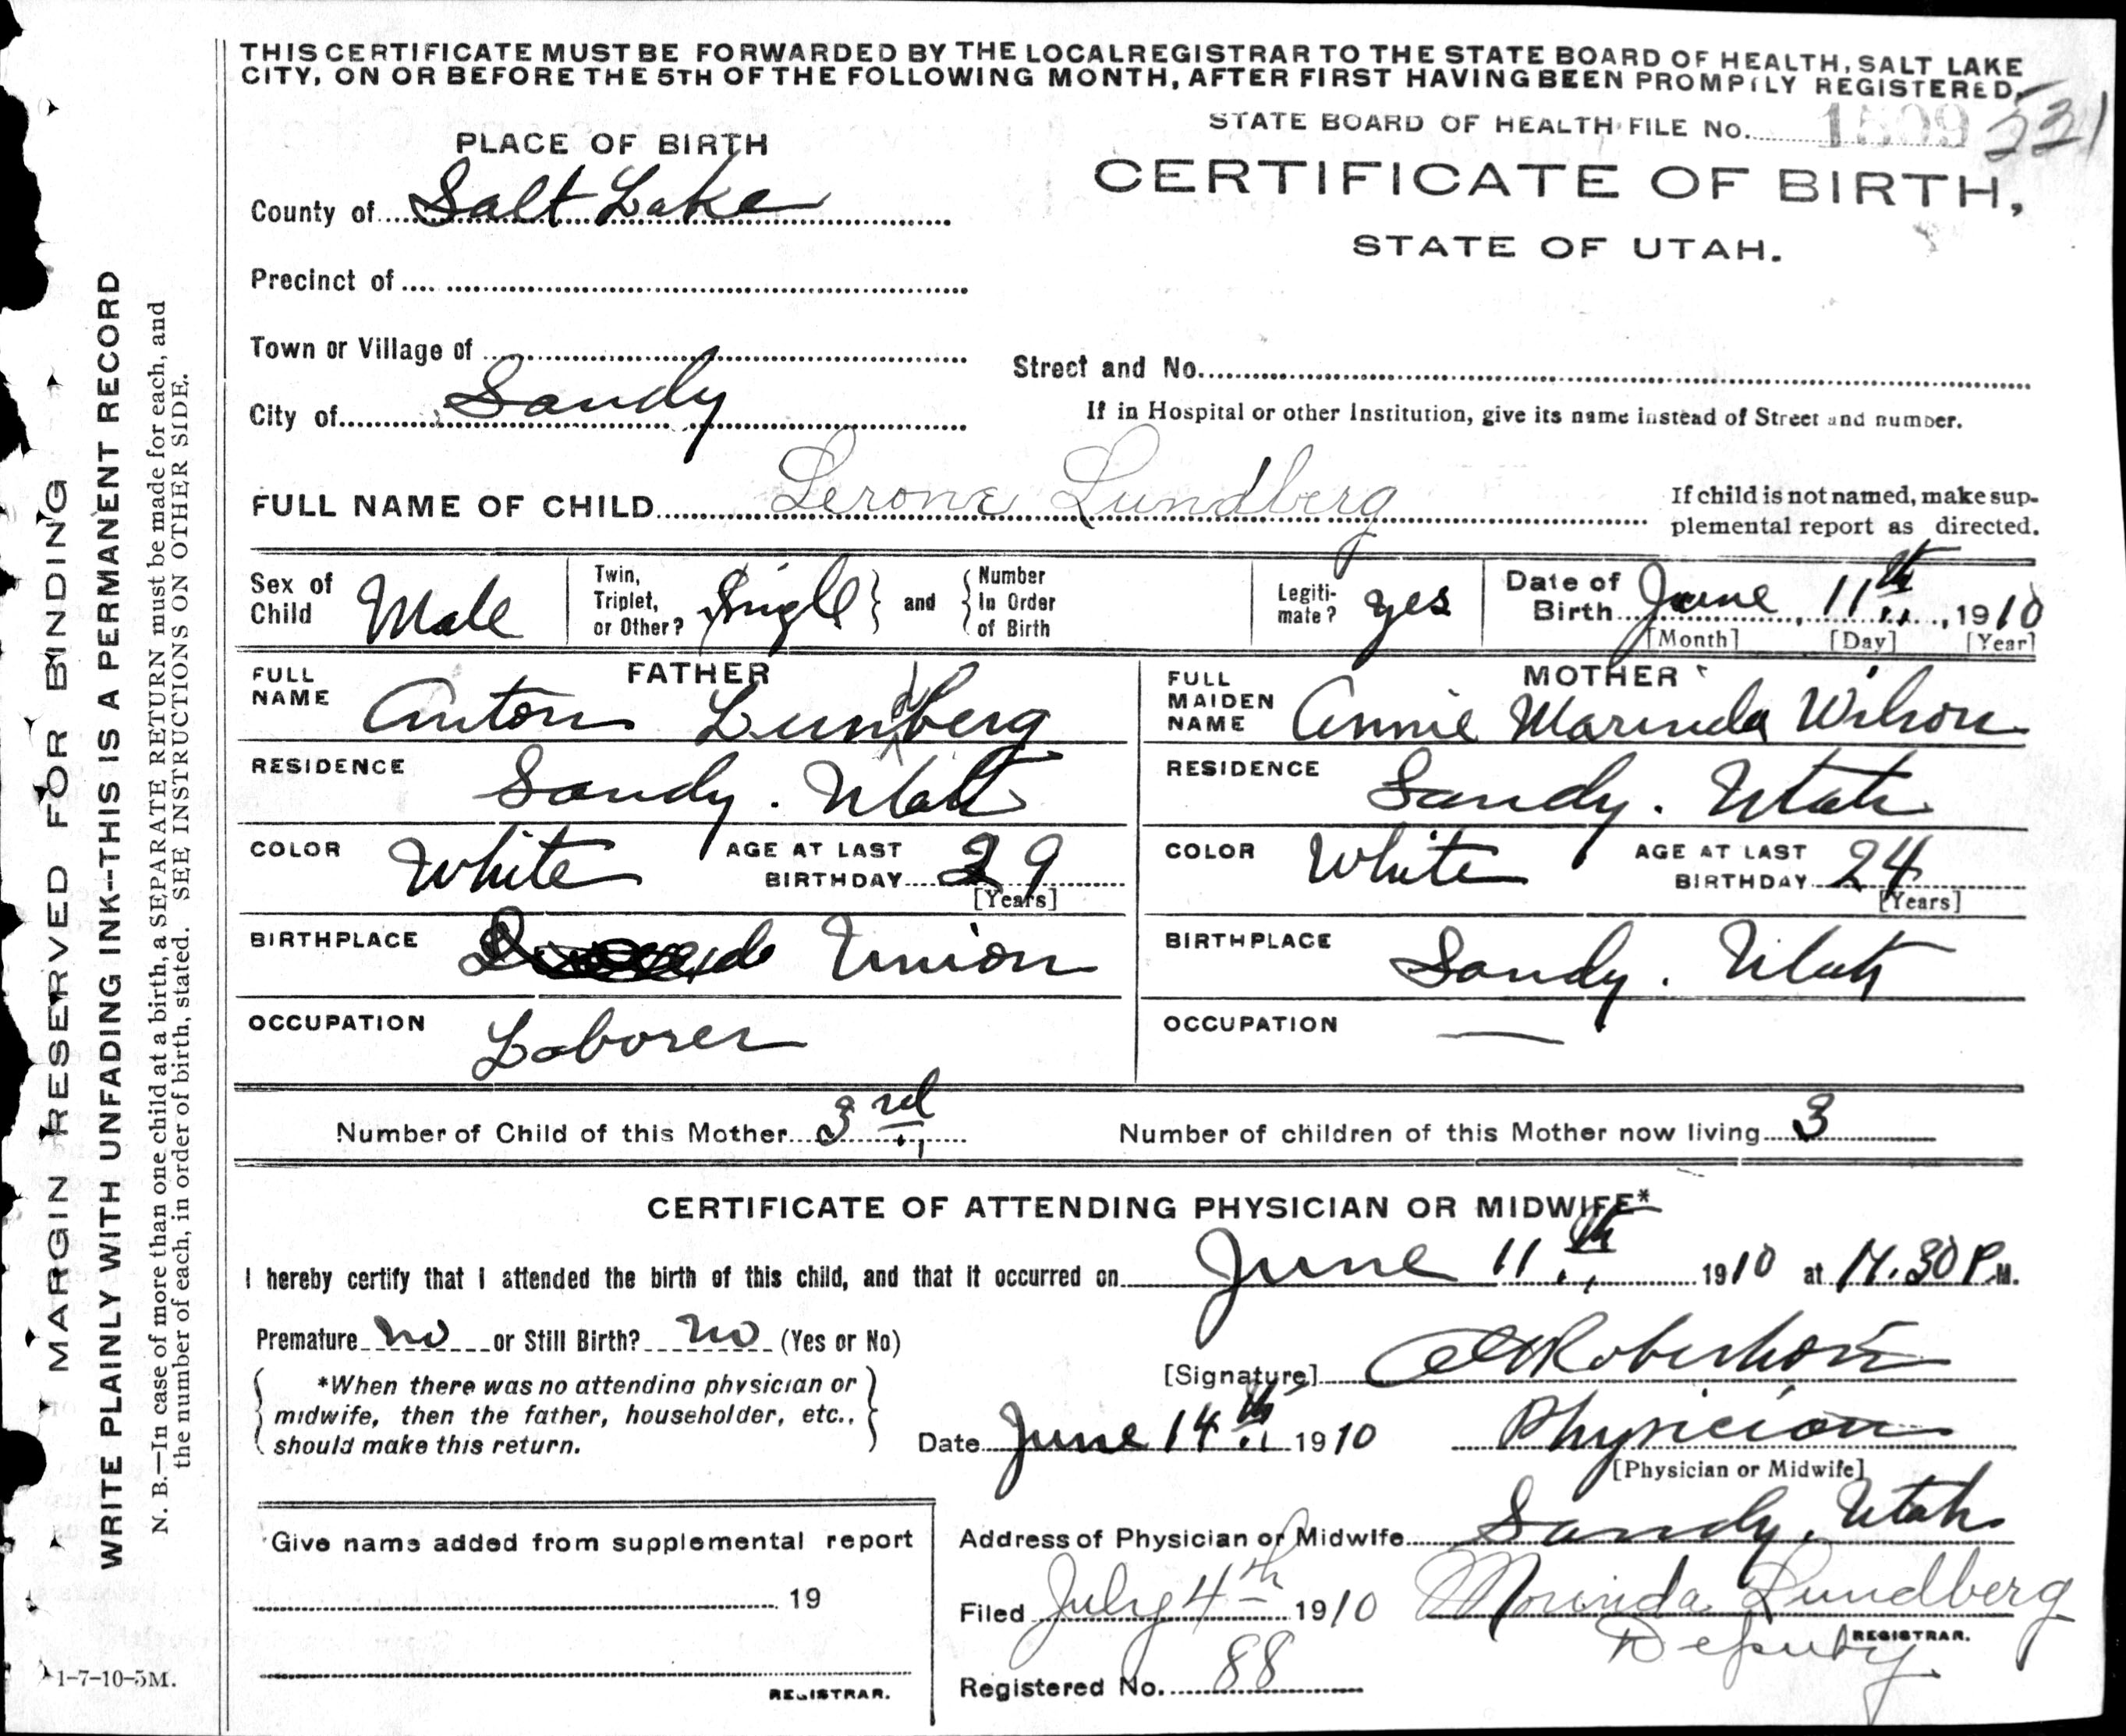 THIS CERTIFICATE MUST BE FORWARDED BY THE LOCAL REGISTRAR TO THE STATE BOARD OF HEALTH, SALT LAKE
CITY, ON OR BEFORE THE 5TH OF THE FOLLOWING MONTH, AFTER FIRST HAVING BEEN PROMPTLY REGISTERED.
STATE BOARD OF HEALTH FILE No. 1509 331
PLACE OF BIRTH
CERTIFICATE OF BIRTH,
STATE OF UTAH.
County of Salt Lake
Precinct of
Town or Village of
Street and No.
City of Sandy
If in Hospital or other Institution, give its name instead of Street and number.
FULL NAME OF CHILD Lerone Lundberg
If child is not named, make sup-
plemental report as directed.
Sex of Child Male
Twin, Triplet, or Other? Single and Number In Order of Birth
Legiti-mate? yes
Date of Birth June 11th, 1910
[Month] [Day] [Year]
FATHER
FULL NAME Anton Lundberg
RESIDENCE Sandy. Utah
COLOR White AGE AT LAST BIRTHDAY 29
[Years]
BIRTHPLACE Union
OCCUPATION Laborer
MOTHER
FULL MAIDEN NAME Annie Marinda Wilson
RESIDENCE Sandy. Utah
COLOR White AGE AT LAST BIRTHDAY 24
[Years]
BIRTHPLACE Sandy. Utah
OCCUPATION —
Number of Child of this Mother 3rd
Number of children of this Mother now living 3
CERTIFICATE OF ATTENDING PHYSICIAN OR MIDWIFE*
I hereby certify that I attended the birth of this child, and that it occurred on June 11th 1910 at 11.30 P.M.
Premature no or Still Birth? no (Yes or No)
*When there was no attending physician or
midwife, then the father, householder, etc.,
should make this return.
[Signature] Robertson
Date June 14th 1910 Physician
[Physician or Midwife]
Address of Physician or Midwife Sandy, Utah
Filed July 4th 1910 Morinda Lundberg
Deputy REGISTRAR.
Registered No. 88
Give name added from supplemental report
19
REGISTRAR.
MARGIN RESERVED FOR BINDING
WRITE PLAINLY WITH UNFADING INK--THIS IS A PERMANENT RECORD
N. B.—In case of more than one child at a birth, a SEPARATE RETURN must be made for each, and
the number of each, in order of birth, stated. SEE INSTRUCTIONS ON OTHER SIDE.
1-7-10-5M.